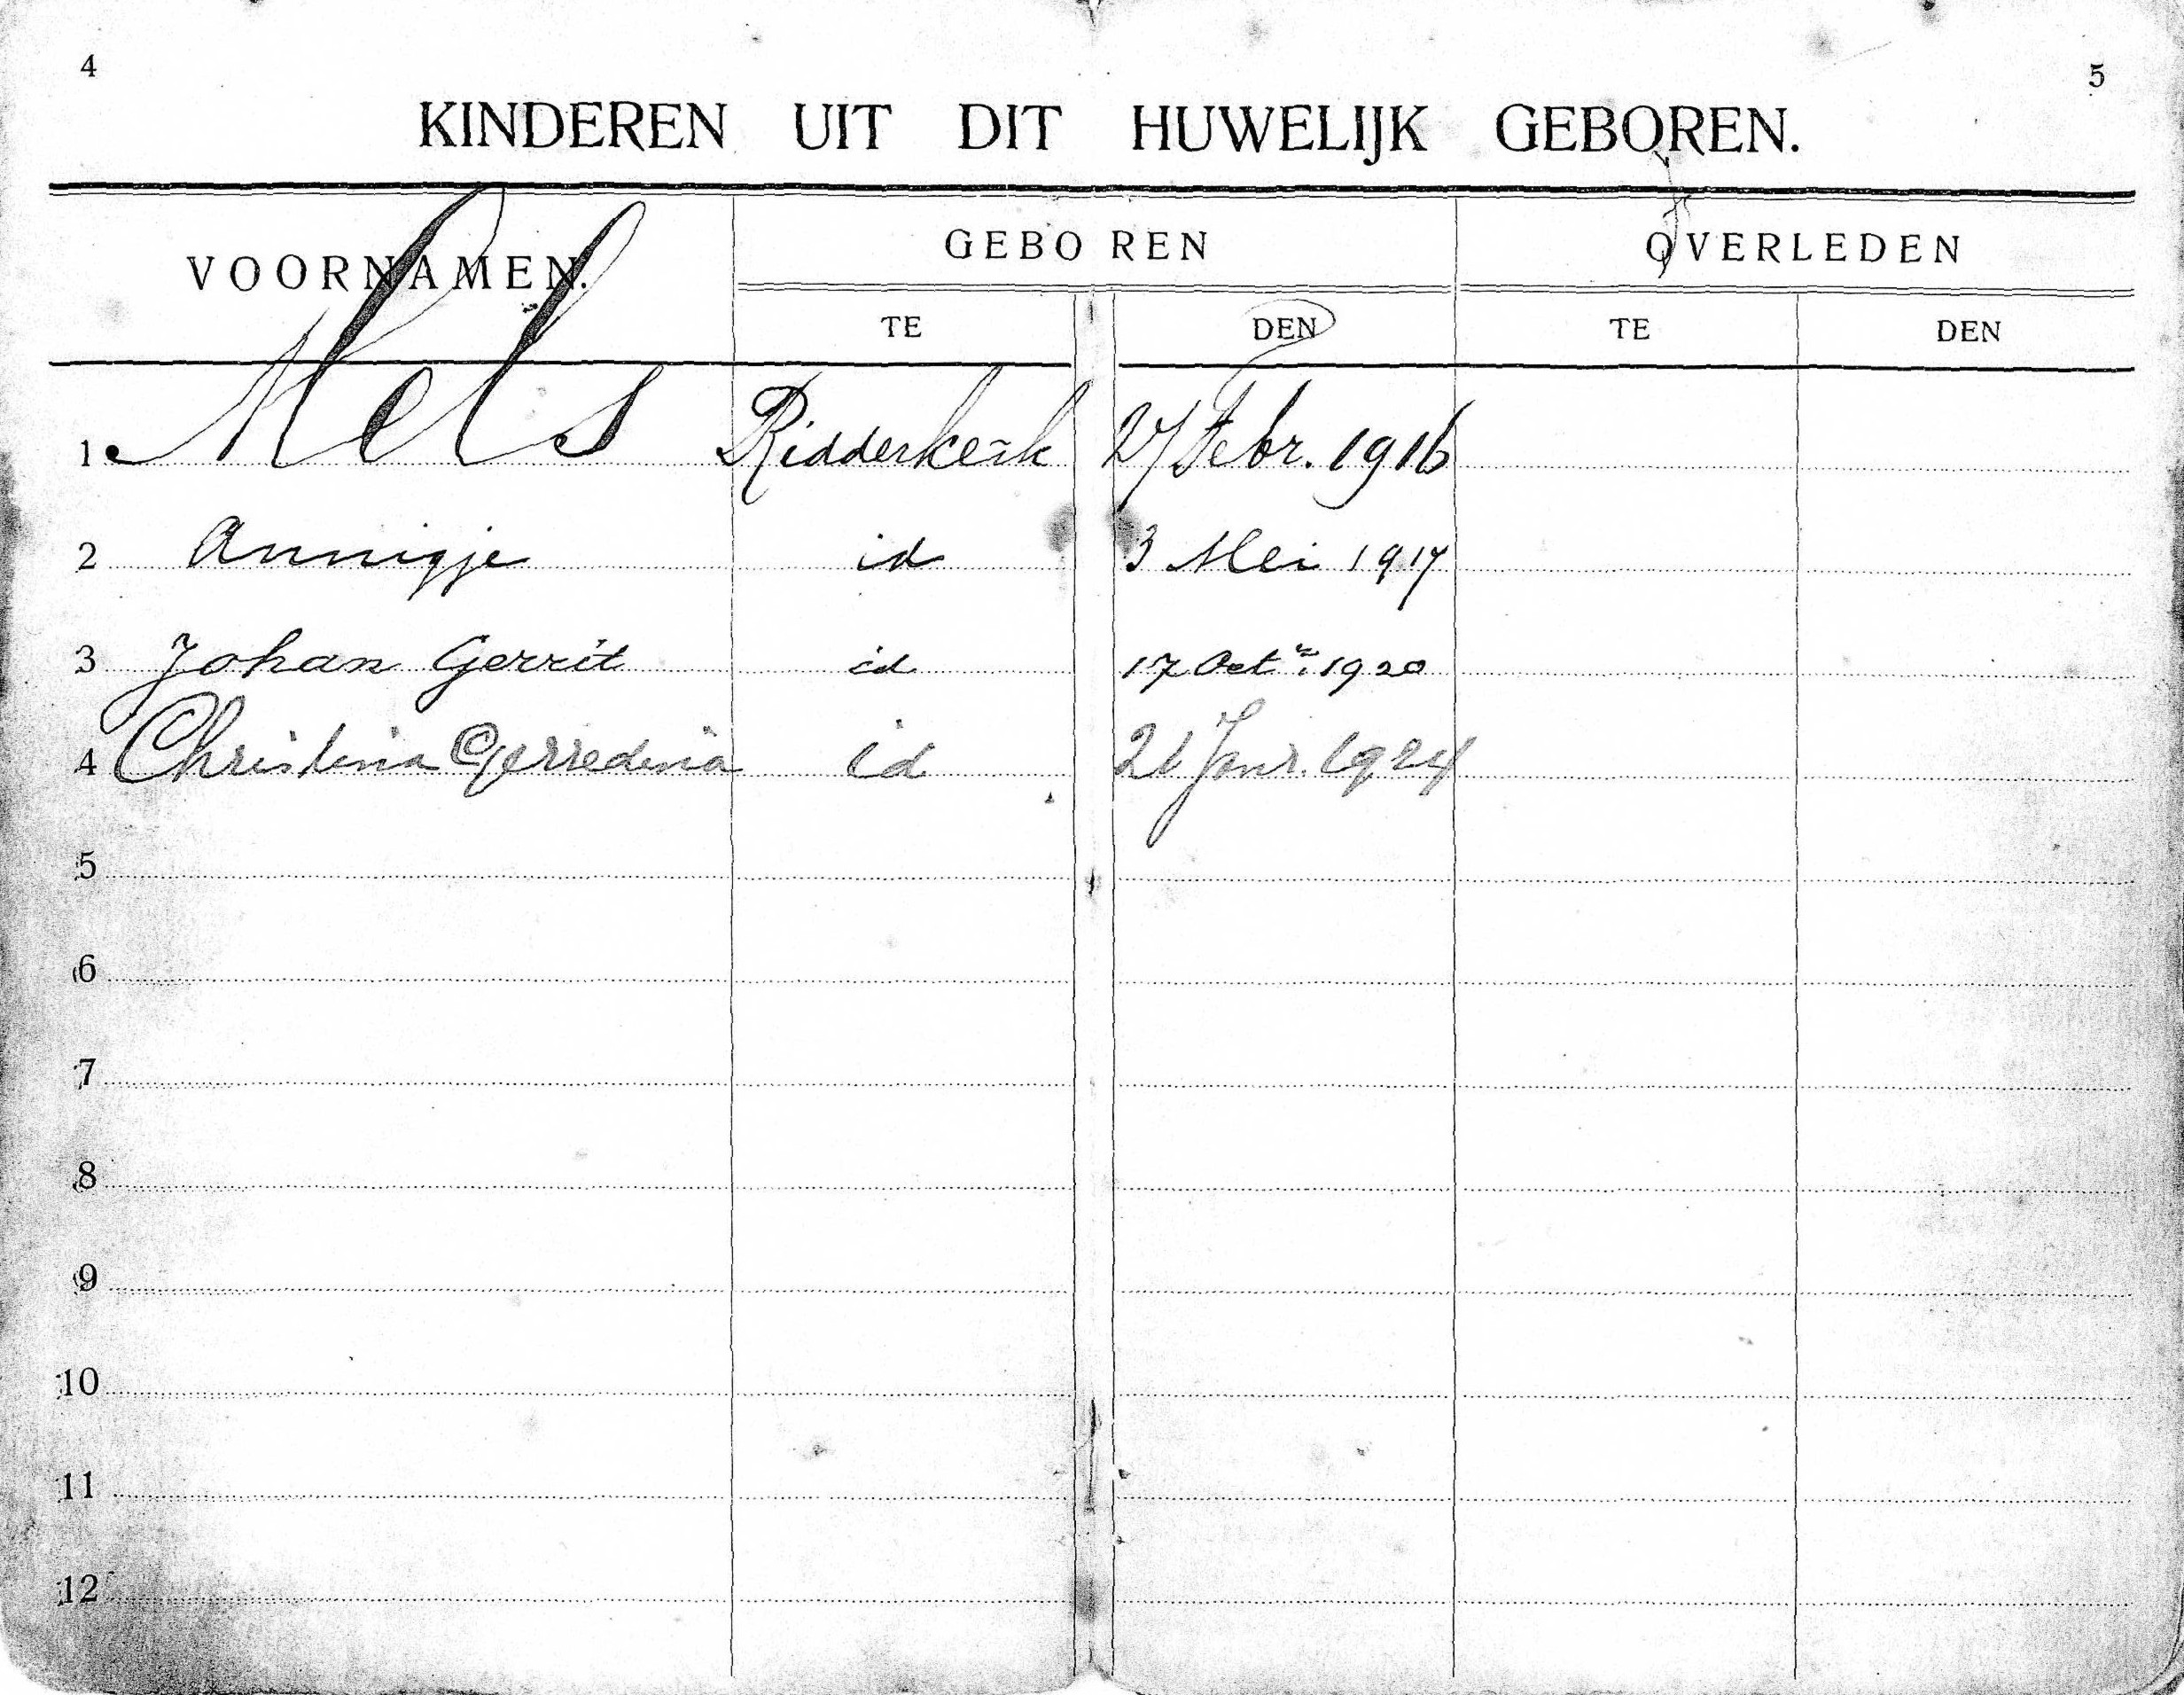 4
5
KINDEREN UIT DIT HUWELIJK GEBOREN.
VOORNAMEN. GEBOREN OVERLEDEN
TE DEN TE DEN
1 Mels Ridderkerk 27 Febr. 1916
2 Annigje id 3 Mei 1917
3 Johan Gerrit id 17 Oct. 1920
4 Christina Gerredina id 21 Janr. 1924
5
6
7
8
9
10
11
12